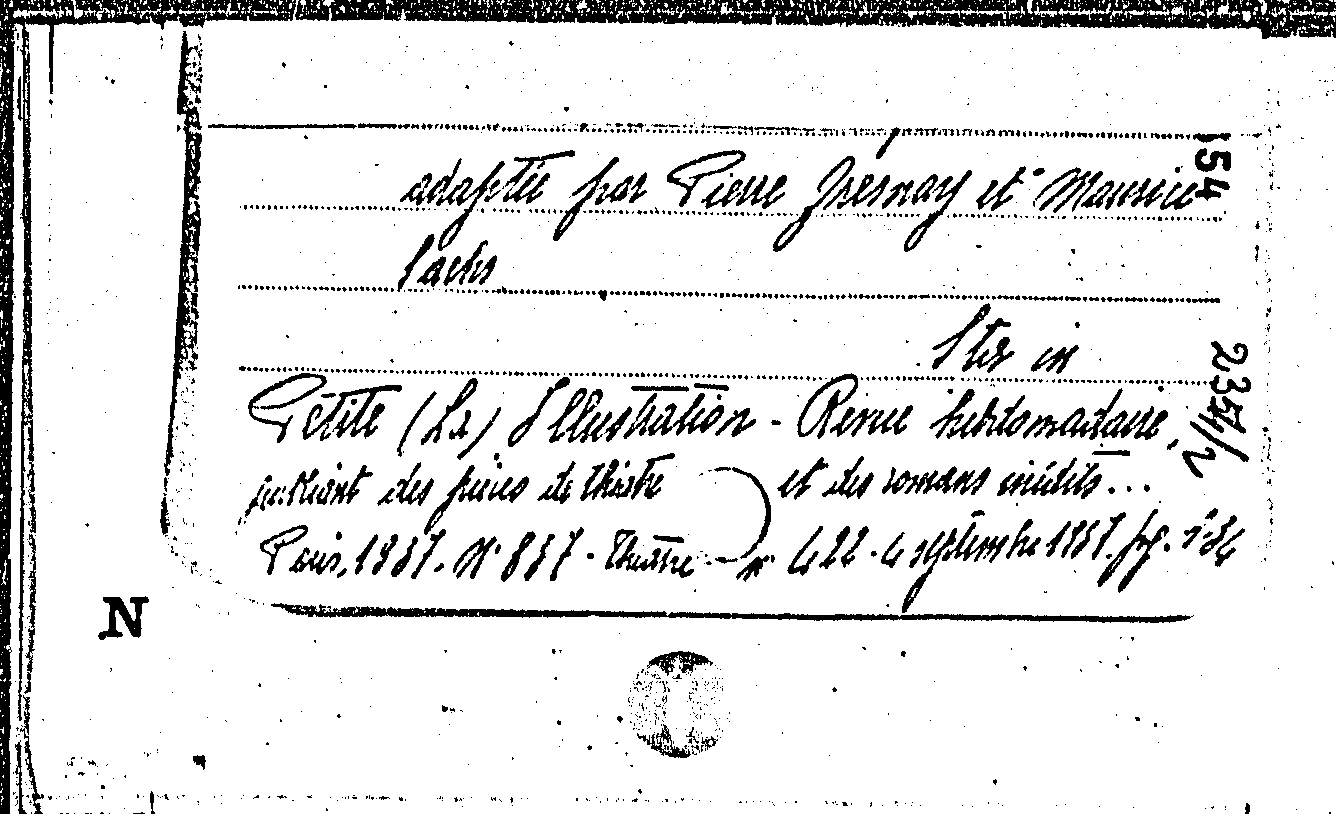 154
adaptée par Pierre Fresnay et Maurice
Sachs
Ster in
235/2
Petite (La) Illustration - Revue hebdomadaire,
publiant des pièces de théâtre et des romans inédits...
Paris, 1937. N° 837 - Théâtre - n° 422 - 4 septembre 1937. pg. 1-34
N